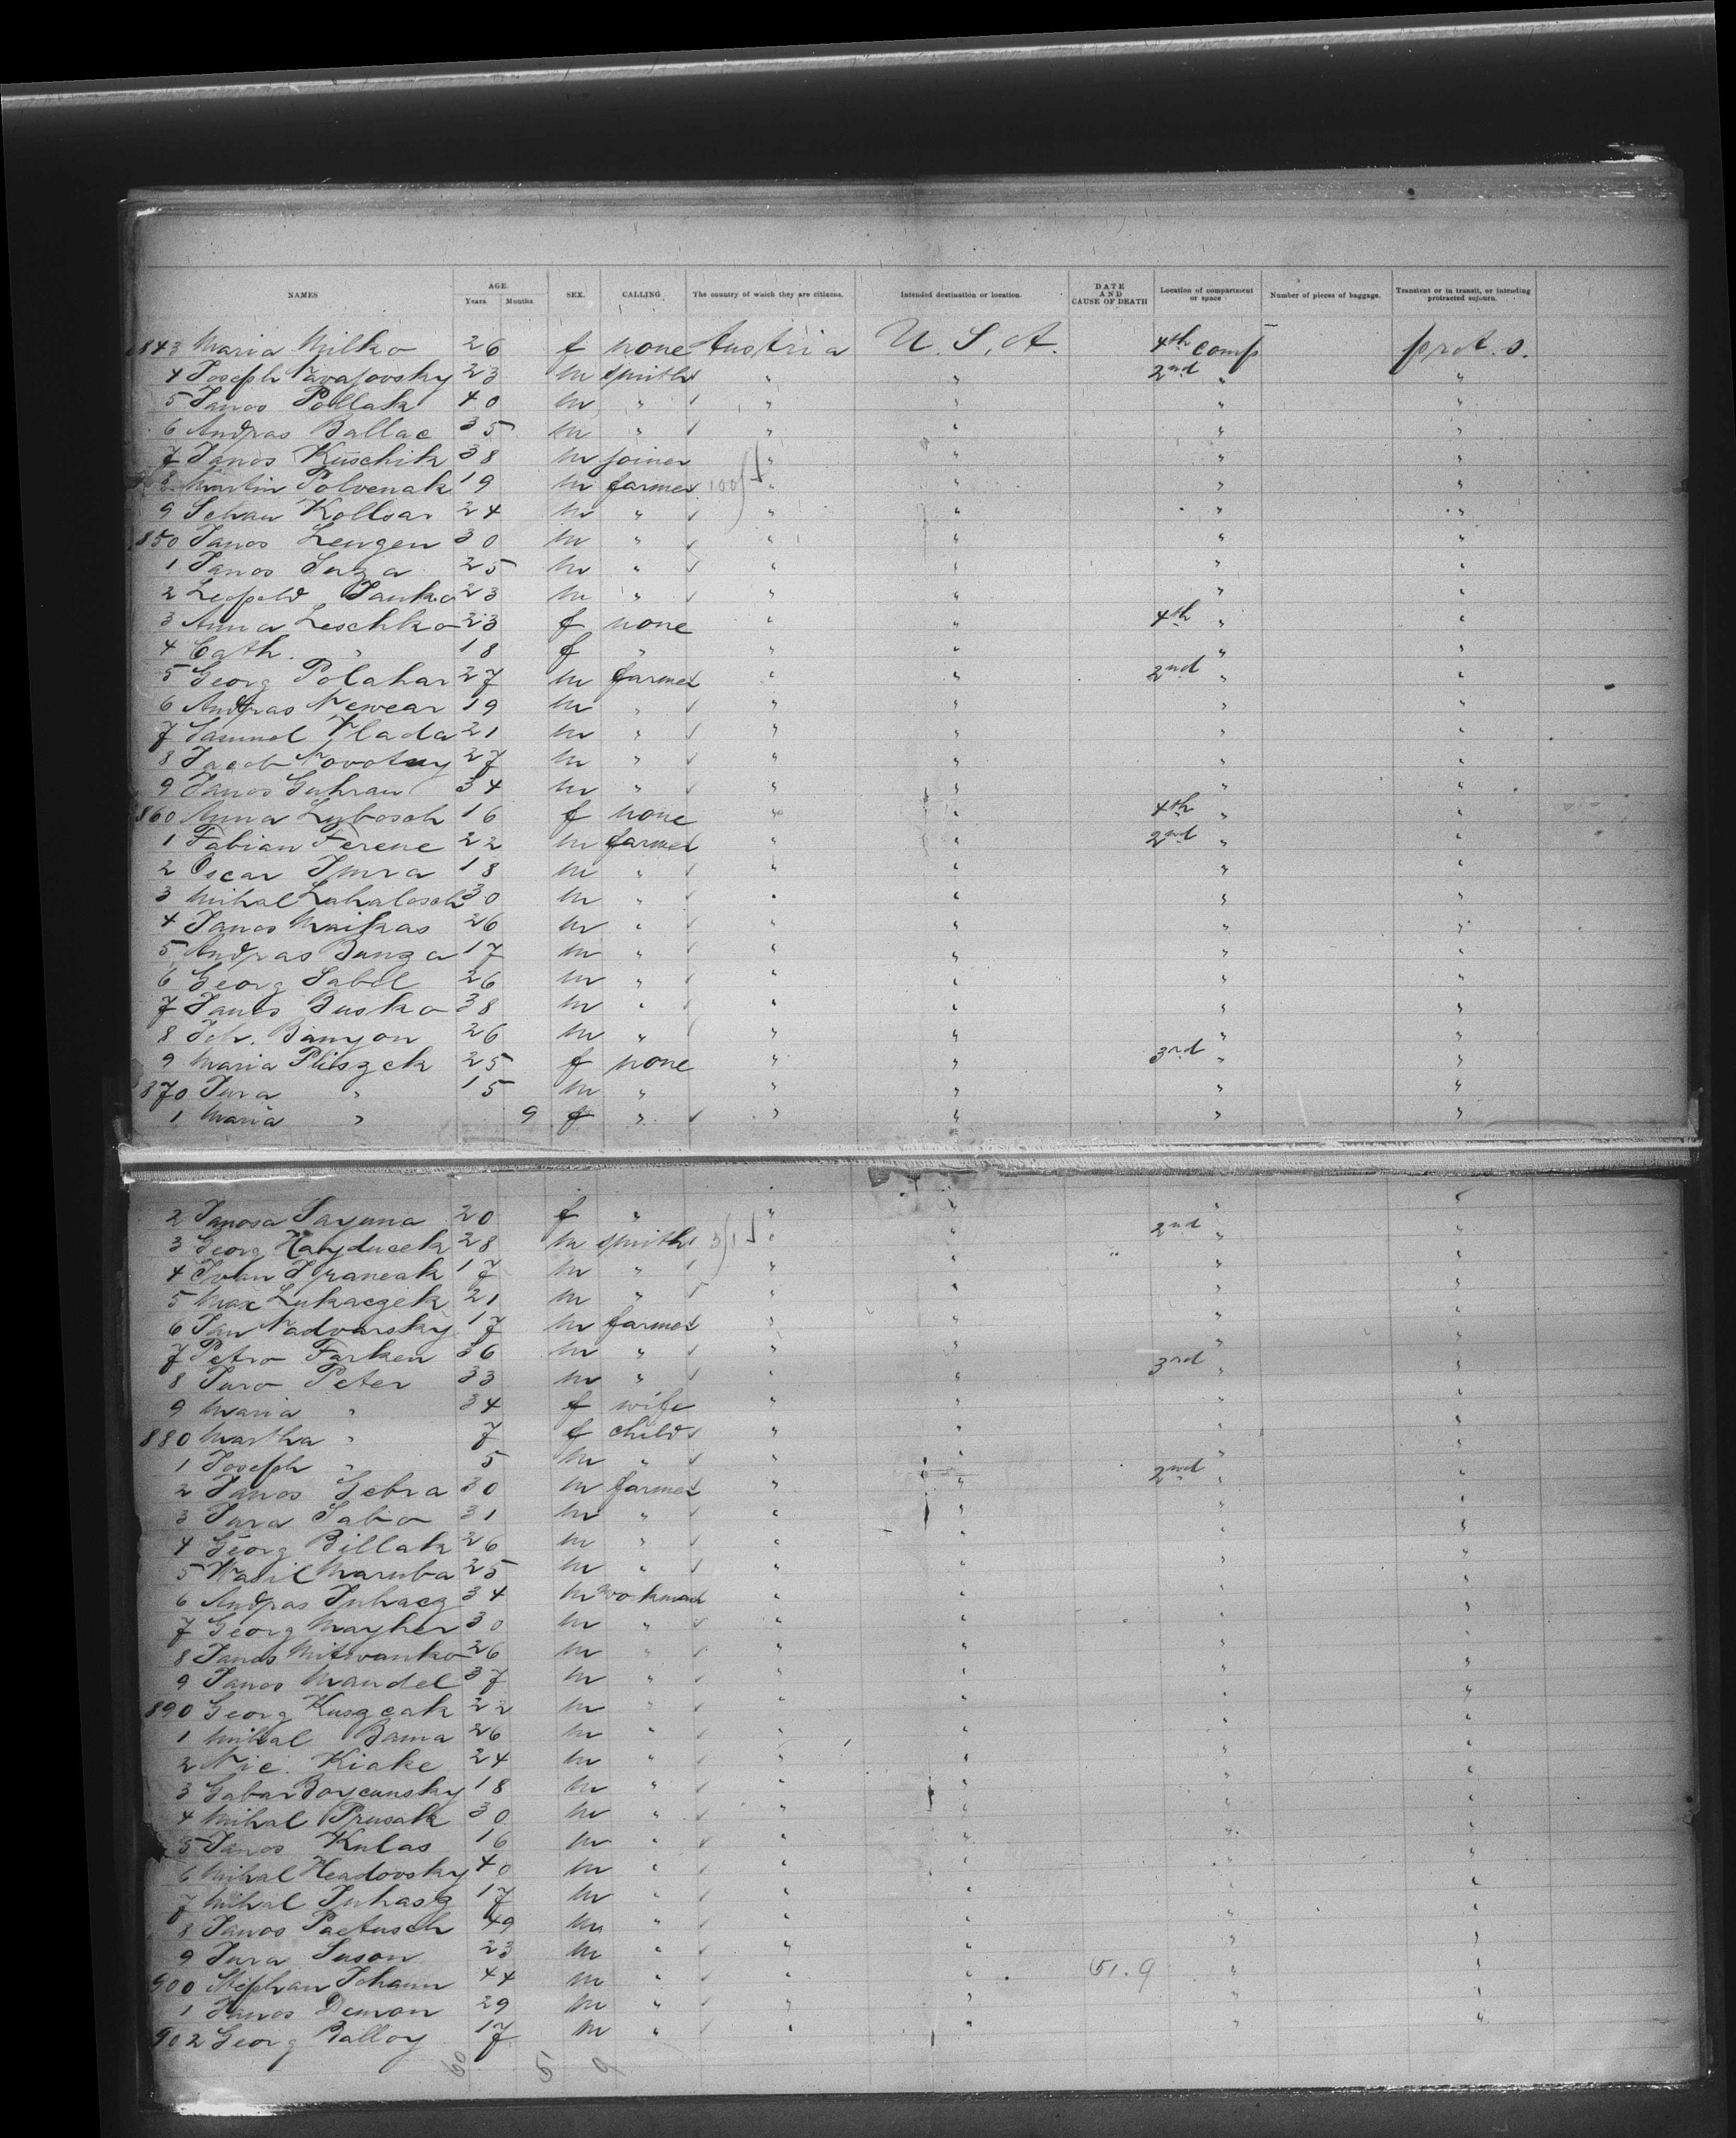 NAMES AGE. Years. Months. SEX. CALLING The country of which they are citizens. Intended destination or location. DATE AND CAUSE OF DEATH Location of compartment or space Number of pieces of baggage. Transient or in transit, or intending protracted sojourn.
843 Maria Milko 26 f none Austria U. S. A. 4th comp prot. s.
4 Joseph 23 m smith " " 2nd " "
5 Janos Pollak 40 m " " " " "
6 Andras Ballac 35 m " " " " "
7 Janos Kuschik 38 m joiner " " " "
8 Martin Polvenak 19 m farmer " " " "
9 Kollsar 24 m " " " " "
850 Janos Lengen 30 m " " " " "
1 Janos 25 m " " " " "
2 Leopold Janko 23 m " " " " "
3 Anna Leschko 23 f none " " 4th " "
4 Cath. " 18 f " " " " "
5 Georg Polahar 27 m farmer " " 2nd " "
6 Andras Newear 19 m " " " " "
7 Samuel Hlada 21 m " " " " "
8 Jacob Novotny 27 m " " " " "
9 Janos Guhran 34 m " " " " "
860 Anna Lybosch 16 f none " " 4th " "
1 Fabian Ferenc 22 m farmer " " 2nd " "
2 Oscar Imra 18 m " " " " "
3 Mihal Lahalosch 30 m " " " " "
4 Janos Maikas 26 m " " " " "
5 Andras Banza 17 m " " " " "
6 Georg Sabol 26 m " " " " "
7 Janos Busko 38 m " " " " "
8 Joh. Banyon 26 m " " " " "
9 Maria Pliszek 25 f none " " 3rd " "
870 Jura " 15 m " " " " "
1 Maria " 9 f " " " " "
2 Janosa 20 f " " " " "
3 Georg Hayducek 28 m smith " " 2nd " "
4 17 m " " " " "
5 Max Lukaczek 21 m " " " " "
6 Jan Nadvarsky 17 m farmer " " " "
7 Petro Farken 36 m " " " " "
8 Juro Peter 33 m " " " 3rd " "
9 Maria " 34 f wife " " " "
880 Martha " 7 f child " " " "
1 Joseph " 5 m " " " " "
2 Janos Gebra 30 m farmer " " 2nd " "
3 Jura Sabo 31 m " " " " "
4 Georg Billak 26 m " " " " "
5 Wasil Maruba 25 m " " " " "
6 Andras Juhacz 34 m workman " " " "
7 Georg Mayher 30 m " " " " "
8 Janos Mitivanko 26 m " " " " "
9 Janos Mandel 37 m " " " " "
890 Georg Kuszcak 22 m " " " " "
1 Mihal Bama 26 m " " " " "
2 Nic. Kiake 24 m " " " " "
3 Gabor 18 m " " " " "
4 Mihal Prusak 30 m " " " " "
5 Janos Kulas 16 m " " " " "
6 Mihal Headovsky 40 m " " " " "
7 Mihal Juhasz 17 m " " " " "
8 Janos Pactusch 49 m " " " " "
9 Jura Suson 23 m " " " " "
900 Stephan Johann 44 m " " " 51.9 " "
1 Janos Demon 29 m " " " " "
902 Georg Balloy 17 m " " " " "